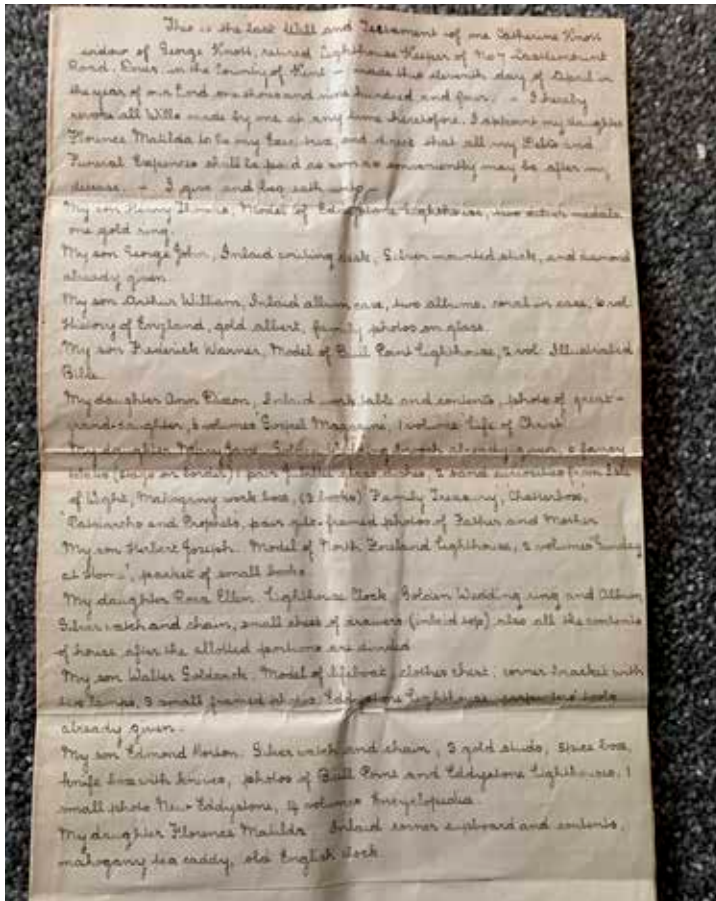 This is the last Will and Testament of me Catherine Knott
widow of George Knott, retired Lighthouse Keeper of No 7 Castlemount
Road, Dover in the County of Kent — made this eleventh day of April in
the year of our Lord one thousand nine hundred and four. — I hereby
revoke all Wills made by me at any time heretofore. I appoint my daughter
Florence Matilda to be my Executrix, and direct that all my Debts and
Funeral Expences shall be paid as soon as conveniently may be after my
decease. — I give and bequeath unto —
My son Henry Thomas, Model of Eddystone Lighthouse, two silver medals
one gold ring.
My son George John, Inlaid writing desk, Silver mounted stick, and diamond
already given.
My son Arthur William, Inlaid album case, two albums, coral in case, 6 vol.
History of England, gold albert, family photos on glass.
My son Frederick Warner, Model of Bull Point Lighthouse, 2 vol. Illustrated
Bible.
My daughter Ann Dixon, Inlaid work table and contents, photo of great-
grand-daughter, 3 volumes 'Gospel Magazine', 1 volume 'Life of Christ'
My daughter Mary Jane, Golden Wedding brooch already given, 6 fancy
plates (  on border) 1 pair of   dishes, 2 sand curiosities from Isle
of Wight, Mahogany work box, (3 books) 'Family Treasury', 'Chatterbox',
'Patriarchs and Prophets', pair gilt-framed photos of Father and Mother
My son Herbert Joseph. Model of North Foreland Lighthouse, 2 volumes 'Sunday
at Home', packet of small books.
My daughter Rosa Ellen. Lighthouse Clock, Golden Wedding ring and Album
Silver watch and chain, small chest of drawers (inlaid top) also all the contents
of house after the allotted portions are divided
My son Walter Goldsack. Model of lifeboat, clothes chest, corner bracket with
two lamps, 3 small framed   Eddystone Lighthouse, carpenters' tools
already given.
My son Edmond Horton. Silver watch and chain, 3 gold studs, spice box,
knife box with knives, photos of Bull Point and Eddystone Lighthouses, 1
small photo New Eddystone, 4 volumes Encyclopedia.
My daughter Florence Matilda. Inlaid corner cupboard and contents,
mahogany tea caddy, old English clock.